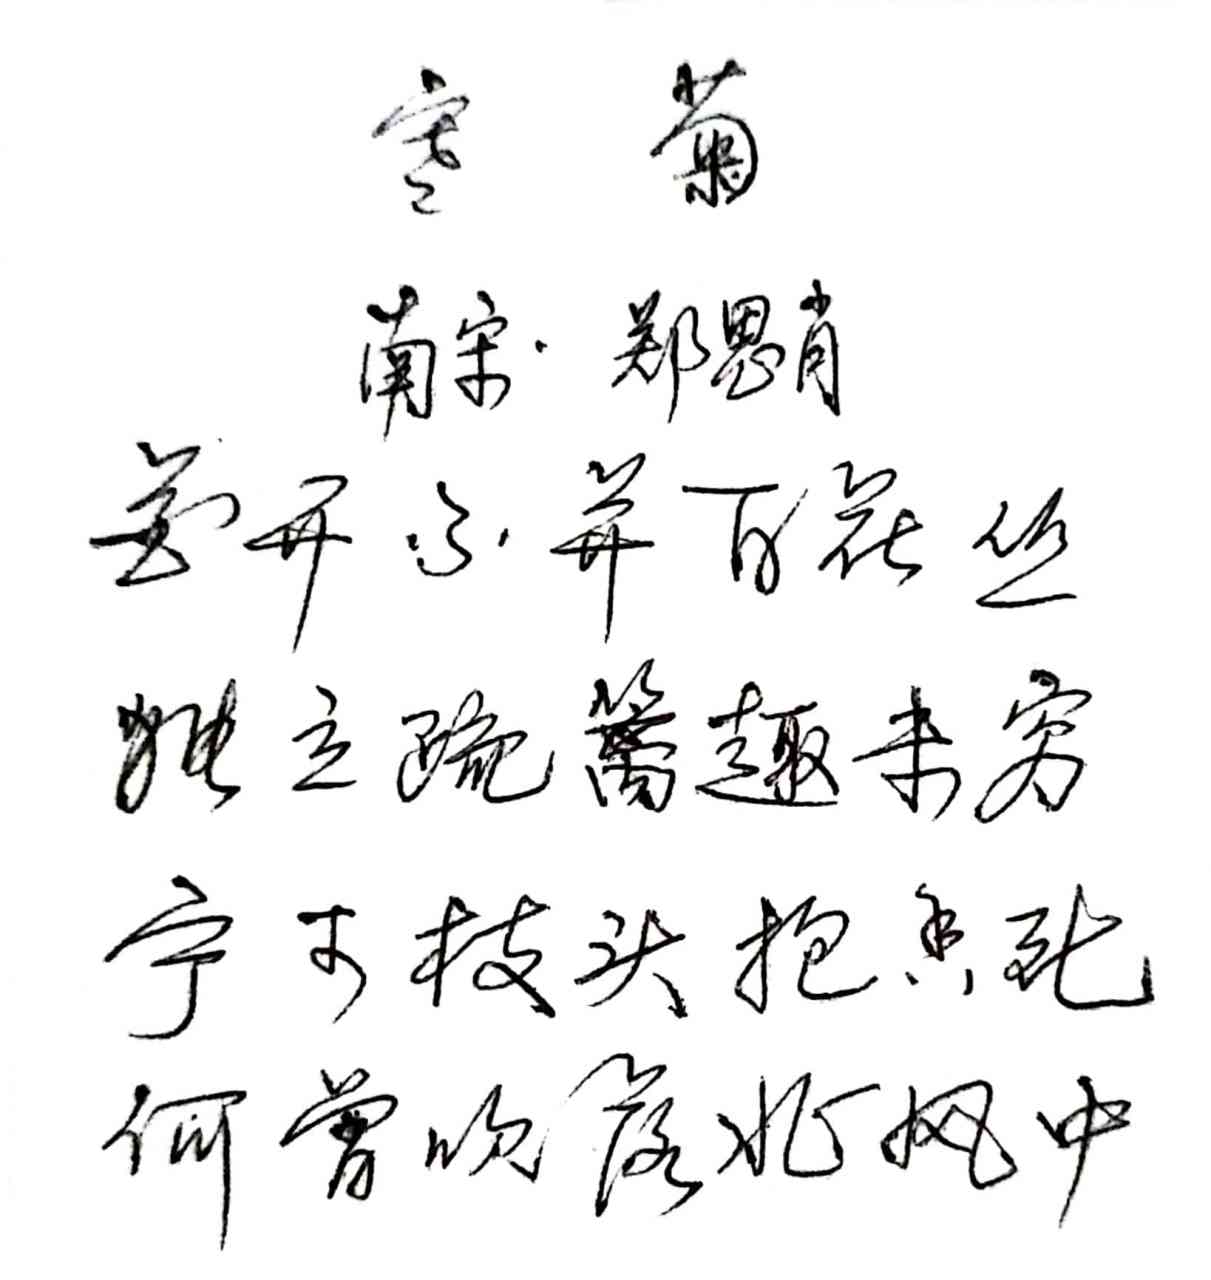 寒菊
南宋·郑思肖
花开不并百花丛
独立疏篱趣未穷
宁可枝头抱香死
何曾吹落北风中